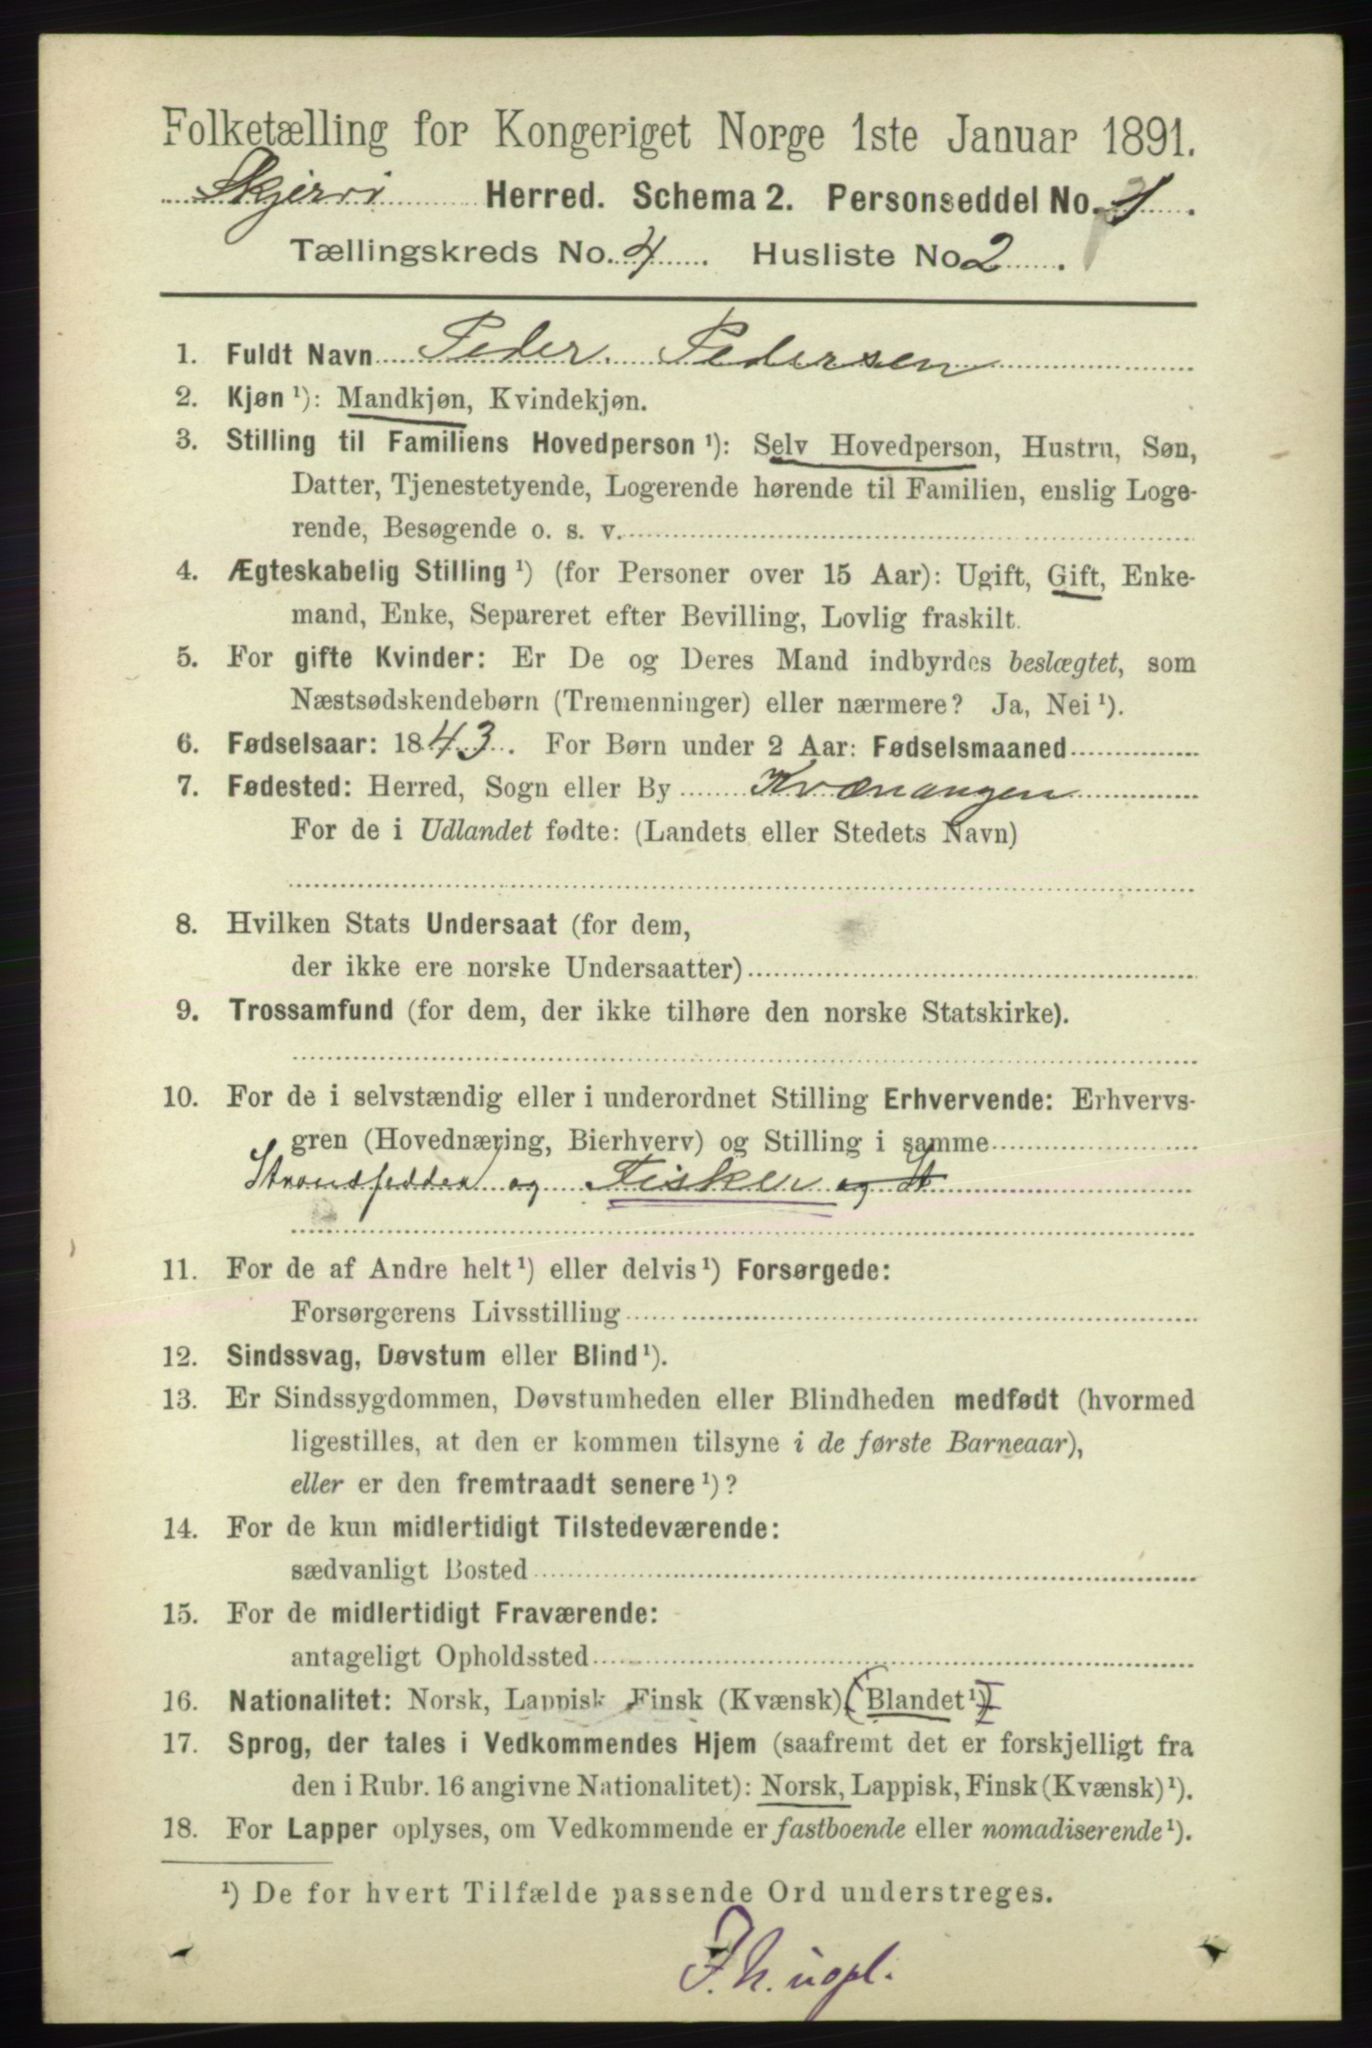 Folketælling for Kongeriget Norge 1ste Januar 1891.
Skjervø Herred. Schema 2. Personseddel No. 1.
Tællingskreds No. 4. Husliste No 2.
1. Fuldt Navn Peder Pedersen
2. Kjøn ¹): Mandkjøn, Kvindekjøn.
3. Stilling til Familiens Hovedperson ¹): Selv Hovedperson, Hustru, Søn,
Datter, Tjenestetyende, Logerende hørende til Familien, enslig Loge-
rende, Besøgende o. s. v.
4. Ægteskabelig Stilling ¹) (for Personer over 15 Aar): Ugift, Gift, Enke-
mand, Enke, Separeret efter Bevilling, Lovlig fraskilt.
5. For gifte Kvinder: Er De og Deres Mand indbyrdes beslægtet, som
Næstsødskendebørn (Tremenninger) eller nærmere? Ja, Nei ¹).
6. Fødselsaar: 1843. For Børn under 2 Aar: Fødselsmaaned
7. Fødested: Herred, Sogn eller By Kvænangen
For de i Udlandet fødte: (Landets eller Stedets Navn)
8. Hvilken Stats Undersaat (for dem,
der ikke ere norske Undersaatter)
9. Trossamfund (for dem, der ikke tilhøre den norske Statskirke).
10. For de i selvstændig eller i underordnet Stilling Erhvervende: Erhvervs-
gren (Hovednæring, Bierhverv) og Stilling i samme
og Fisker og St
11. For de af Andre helt ¹) eller delvis ¹) Forsørgede:
Forsørgerens Livsstilling
12. Sindssvag, Døvstum eller Blind ¹).
13. Er Sindssygdommen, Døvstumheden eller Blindheden medfødt (hvormed
ligestilles, at den er kommen tilsyne i de første Barneaar),
eller er den fremtraadt senere ¹)?
14. For de kun midlertidigt Tilstedeværende:
sædvanligt Bosted
15. For de midlertidigt Fraværende:
antageligt Opholdssted
16. Nationalitet: Norsk, Lappisk, Finsk (Kvænsk) (Blandet ¹)
17. Sprog, der tales i Vedkommendes Hjem (saafremt det er forskjelligt fra
den i Rubr. 16 angivne Nationalitet): Norsk, Lappisk, Finsk (Kvænsk) ¹).
18. For Lapper oplyses, om Vedkommende er fastboende eller nomadiserende ¹).
¹) De for hvert Tilfælde passende Ord understreges.